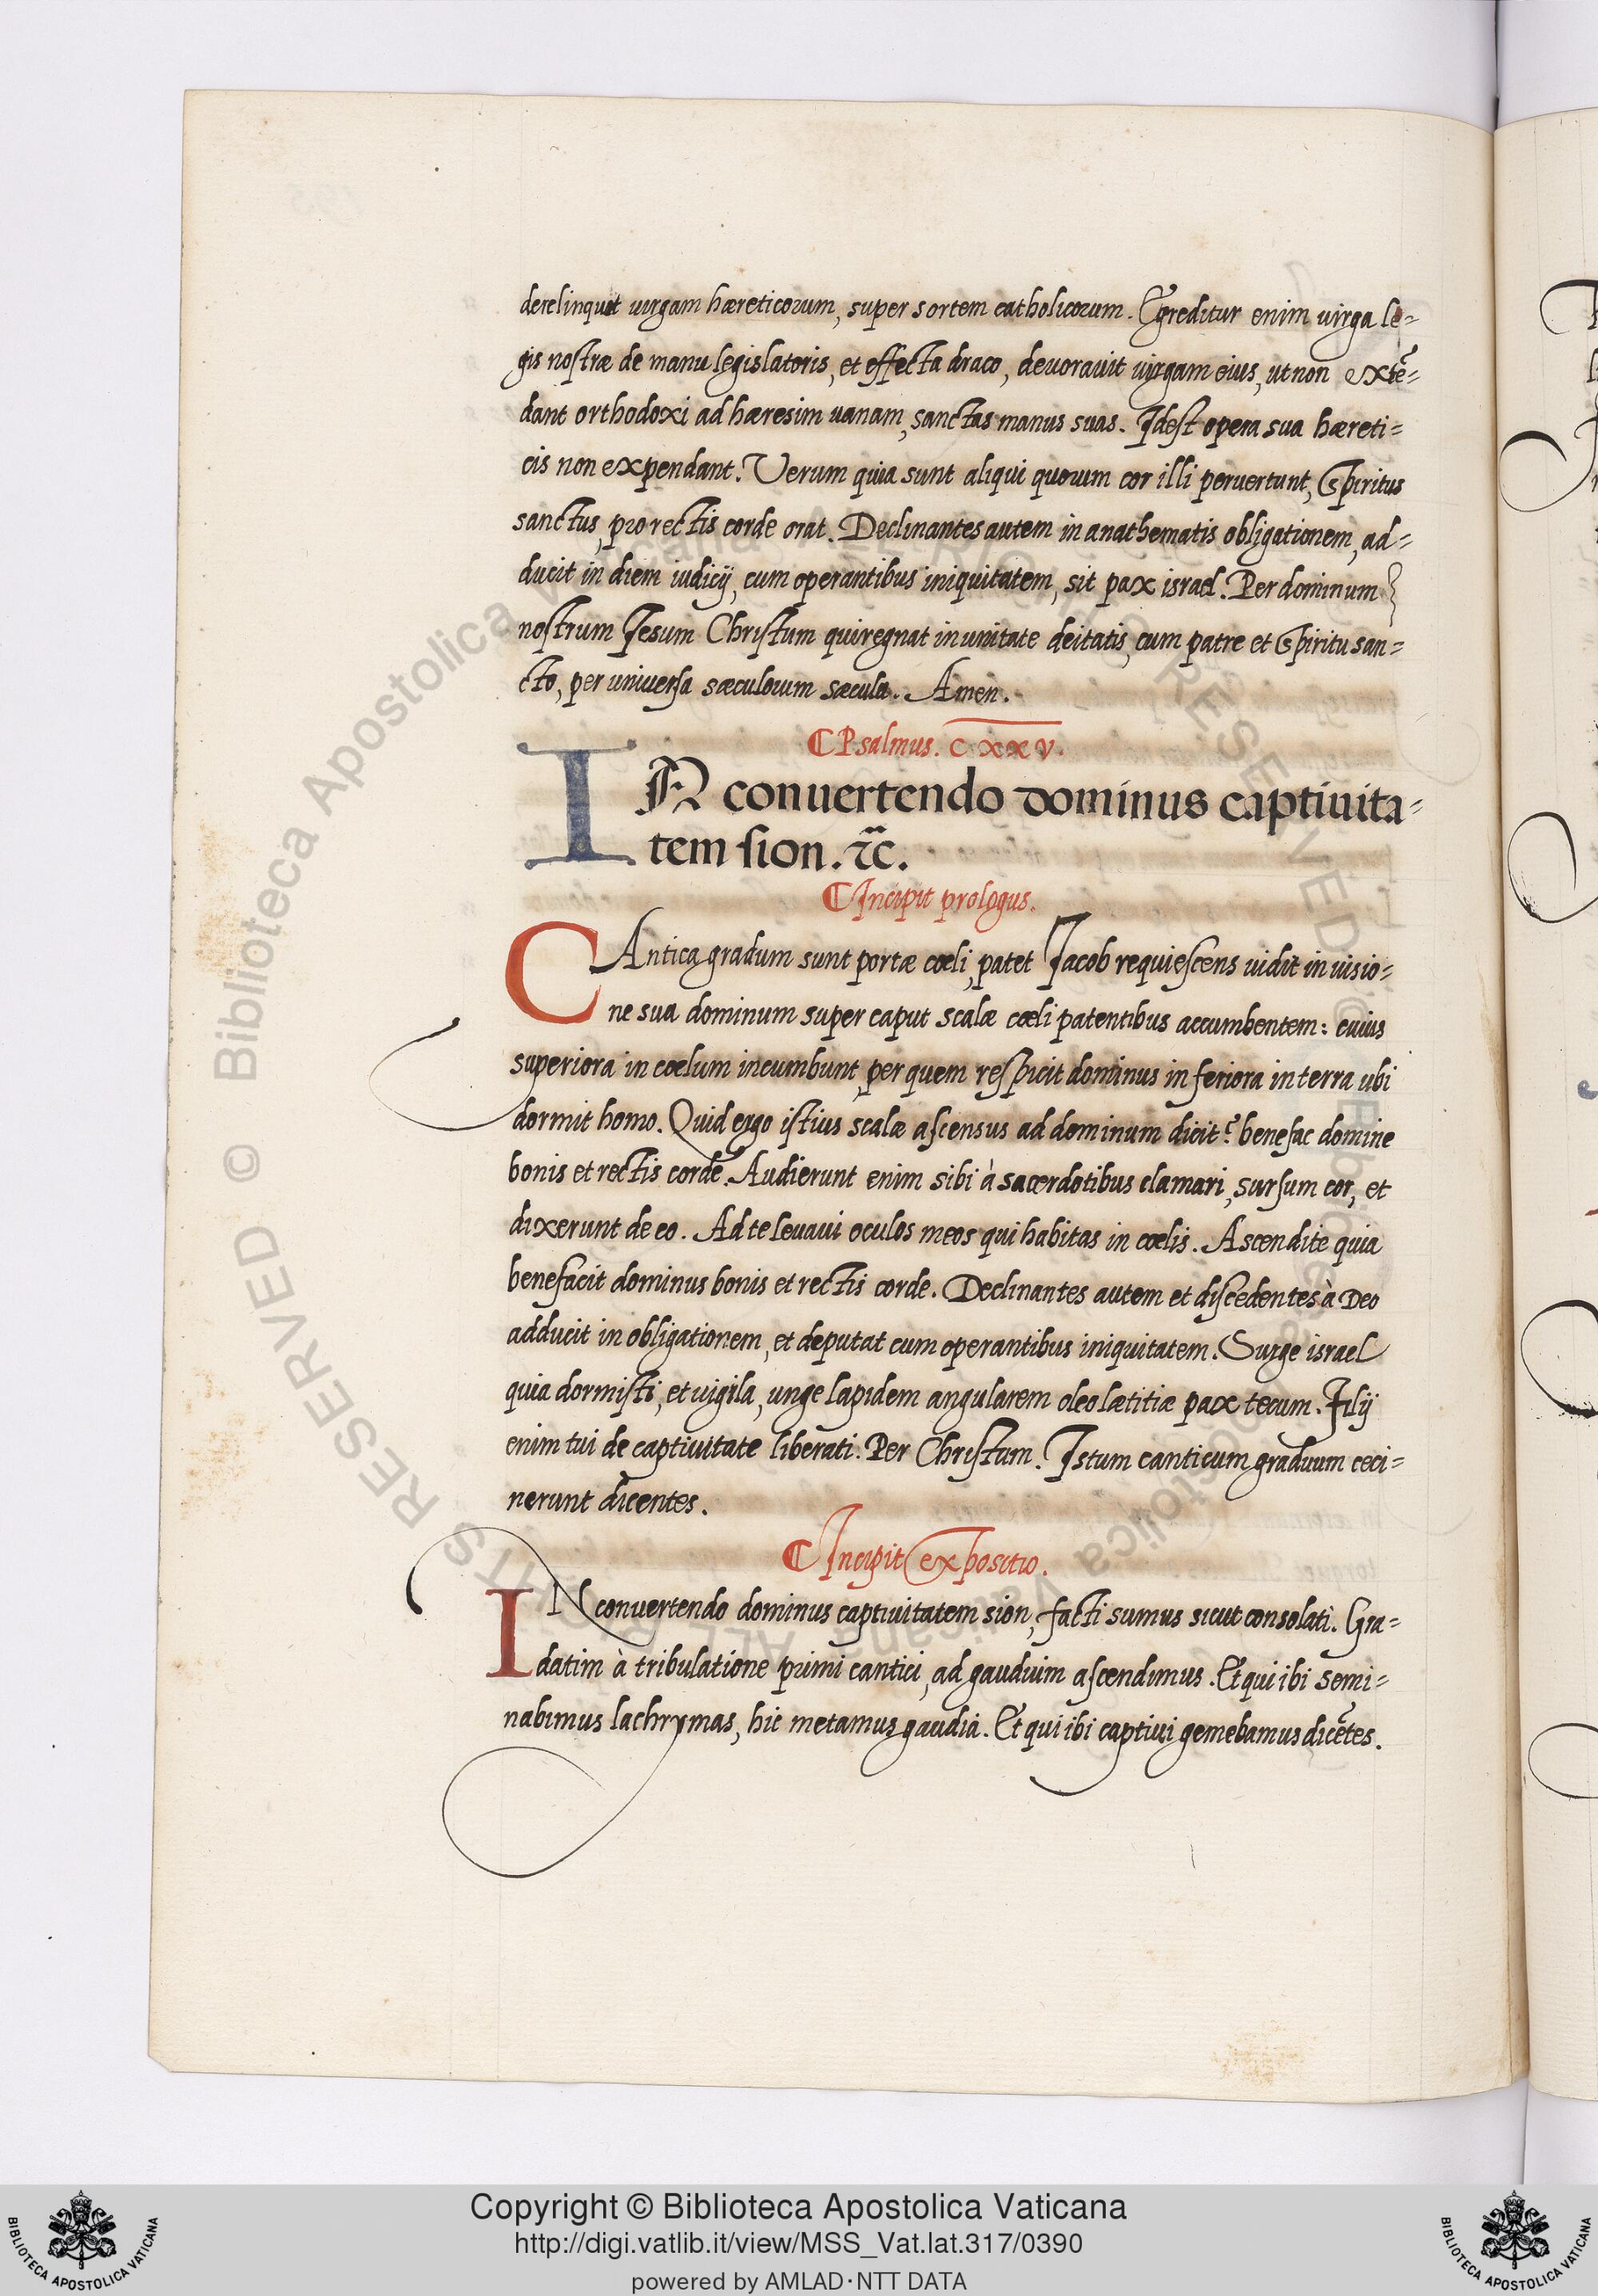 derelinquit uirgam hæreticorum, super sortem catholicorum. Egreditur enim uirga le=
gis nostræ de manu legislatoris, et effecta draco, deuorauit uirgam eius, ut non extē=
dant orthodoxi ad hæresim uanam, sanctas manus suas. Idest opera sua hæreti=
cis non expendant. Verum quia sunt aliqui quorum cor illi peruertunt, Spiritus
sanctus, pro rectis corde orat. Declinantes autem in anathematis obligationem, ad=
ducit in diem iudicij, cum operantibus iniquitatem, sit pax israel. Per dominum
nostrum Iesum Christum qui regnat in unitate deitatis, cum patre et Spiritu san=
cto, per uniuersa sæculorum sæcula. Amen.
¶ Psalmus. CXXV.
IN conuertendo dominus captiuita=
tem sion. ⁊c̄.
¶ Incipit prologus.
CAntica gradum sunt portæ cœli, patet Iacob requiescens uidit in uisio=
ne sua dominum super caput scalæ cœli patentibus accumbentem: cuius
superiora in cœlum incumbunt, per quem respicit dominus inferiora in terra ubi
dormit homo. Quid ergo istius scalæ ascensus ad dominum dicit? benefac domine
bonis et rectis corde. Audierunt enim sibi à sacerdotibus clamari, sursum cor, et
dixerunt de eo. Ad te leuaui oculos meos qui habitas in cœlis. Ascendite quia
benefacit dominus bonis et rectis corde. Declinantes autem et discedentes à Deo
adducit in obligationem, et deputat cum operantibus iniquitatem. Surge israel
quia dormisti, et uigila, unge lapidem angularem oleo lætitiæ pax tecum. Filij
enim tui de captiuitate liberati. Per Christum. Istum canticum graduum ceci=
nerunt dicentes.
¶ Incipit expositio.
IN conuertendo dominus captiuitatem sion, facti sumus sicut consolati. Gra=
datim à tribulatione primi cantici, ad gaudium ascendimus. Et qui ibi semi=
nabimus lachrymas, hic metamus gaudia. Et qui ibi captiui gemebamus dicētes.
© Biblioteca Apostolica Vaticana ALL RIGHTS RESERVED
Copyright © Biblioteca Apostolica Vaticana
http://digi.vatlib.it/view/MSS_Vat.lat.317/0390
powered by AMLAD·NTT DATA
BIBLIOTECA APOSTOLICA VATICANA
BIBLIOTECA APOSTOLICA VATICANA